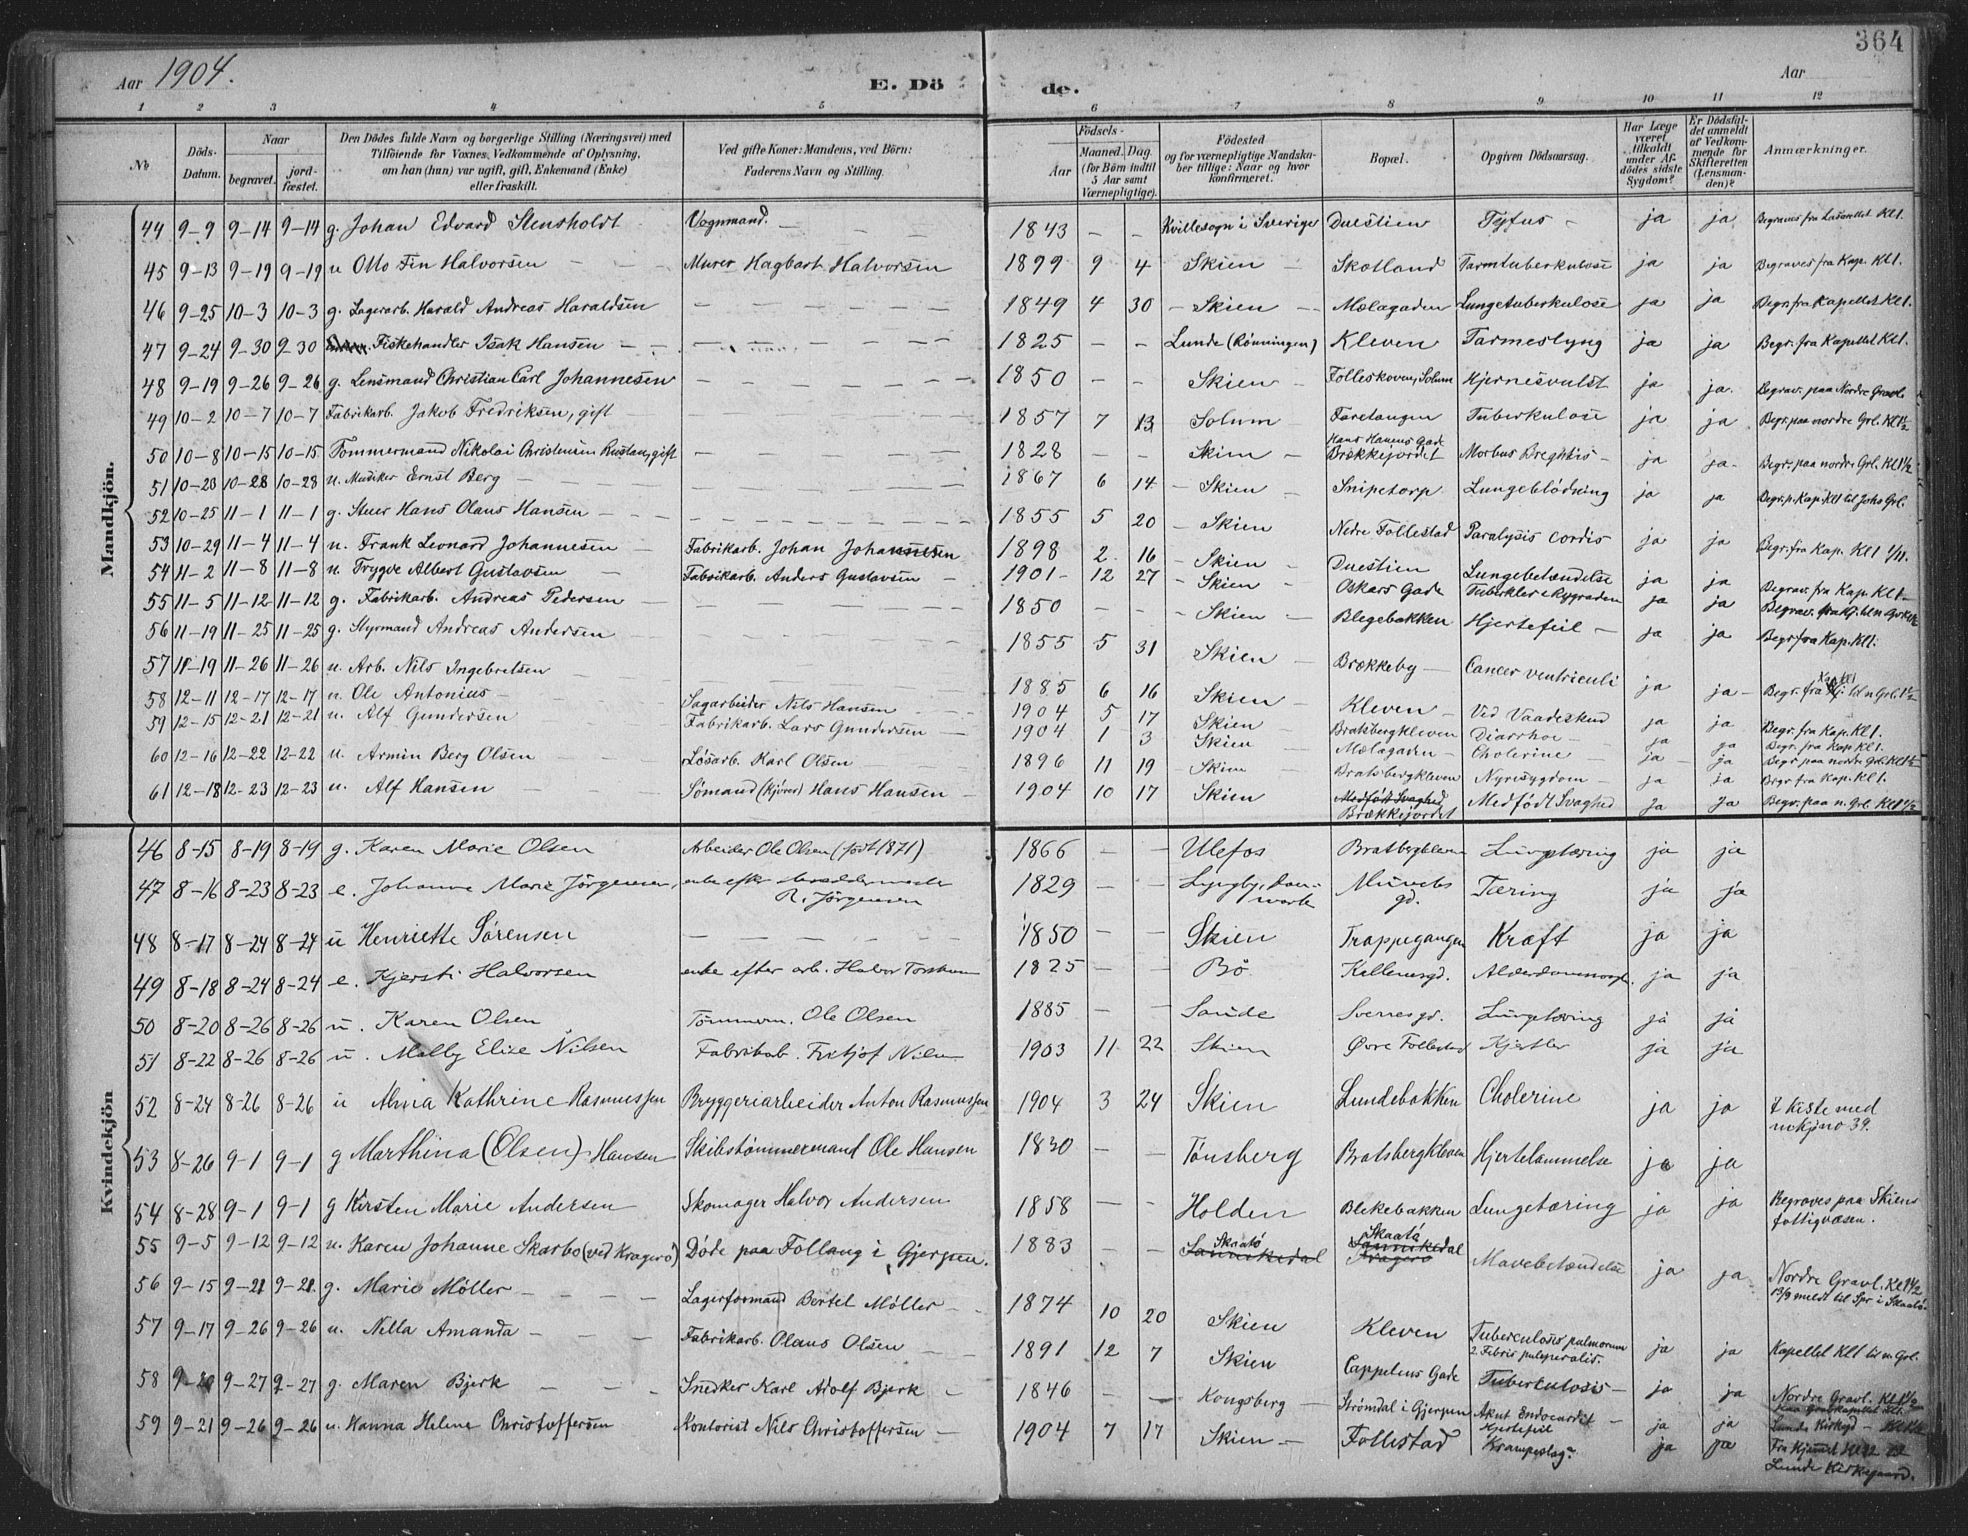 364
Aar 1904. E. Dö de. Aar
1 2 3 4 5 6 7 8 9 10 11 12
No
Döds-Datum.
Naar
begravet.
jordfæstet.
Den Dödes fulde Navn og borgerlige Stilling (Næringsvei) med
Tilföiende for Voxnes Vedkommende af Oplysning,
om han (hun) var ugift, gift, Enkemand (Enke)
eller fraskilt.
Ved gifte Koner: Mandens, ved Börn:
Faderens Navn og Stilling.
Födsels-
Aar
Maaned. Dag.
(for Börn indtil
5 Aar samt
Værnepligtige).
Födested
og for værnepligtige Mandska-
ber tillige: Naar og hvor
konfirmeret.
Bopæl.
Opgiven Dödsaarsag.
Har Læge
været
tilkaldt
under Af-
dödes sidste
Sygdom?
Er Dödsfal-
det anmeldt
af Vedkom-
mende for
Skifteretten
(Lensman-
den)?
Anmærkninger.
Mandkjön.
44 9-9 9-14 9-14 g. Johan Edvard Stensholdt Vognmand. 1843 – – Kvillesogn i Sverige Duestien Tyfus – ja ja Begraves fra Kl 1.
45 9-13 9-19 9-19 u Otto Fin Halvorsen Murer Hagbart Halvorsen 1899 9 4 Skien Skotland Tarmtuberkulose ja ja Begraves fra Kap. Kl 1.
46 9-25 10-3 10-3 g. Lagerarb. Harald Andreas Haraldsen 1849 4 30 Skien Mælagaden Lungetuberkulose ja ja Begr. fra Kapellet Kl 1.
47 9-24 9-30 9-30 Fiskehandler Isak Hansen 1825 – – Lunde (Rønningen) Kleven Tarmeslyng ja ja Begr. fra Kapellet Kl 1.
48 9-19 9-26 9-26 g. Lensmand Christian Carl Johannesen 1850 – – Skien Folleskoven, Solum Hjernesvulst ja ja. Begrav. paa Nordre Gravl.
49 10-2 10-7 10-7 Fabrikarb. Jakob Fredriksen, gift 1857 7 13 Solum Faretangen Tuberkulose ja ja Begr. paa nordre Grl. Kl 1½
50 10-8 10-15 10-15 Tømmermand Nikolai Christensen Rustan, gift 1828 – – Skien Hans Hanens Gade Brækkejordet Morbus Breghtis – ja ja. Begr. paa nordre Grl. Kl 1½
51 10-23 10-28 10-28 u. Musiker Ernst Berg 1867 6 14 Skien Snipetorp Lungeblødning ja ja Begr. p. Kap. Kl 1 til Johs Grl.
52 10-25 11-1 11-1 g. Stuer Hans Olaus Hansen 1855 5 20 Skien Nedre Follestad Paralysis cordis ja ja Begr. fra Kap. Kl 1 1/11.
53 10-29 11-4 11-4 u. Frank Leonard Johannesen Fabrikarb. Johan Johannesen 1898 2 16 Skien Duestien Lungebetændelse ja ja Begrav. fra Kap. Kl 1
54 11-2 11-8 11-8 u. Trygve Albert Gustavsen Fabrikarb. Anders Gustavsen 1901 12 27 Skien Oskars Gade Tuberkler i Rygraden ja ja
55 11-5 11-12 11-12 g. Fabrikarb. Andreas Pedersen 1850 – – Skien Blegebakken Hjertefeil – ja ja Begr. fra Kap. Kl 1.
56 11-19 11-25 11-25 g. Styrmand Andreas Andersen 1855 5 31 Skien Brækkeby Cancer ventriculi ja ja
57 11-19 11-26 11-26 u. Arb. Nils Ingebretsen 1885 6 16 Skien Kleven Ved Vaadeskud ja ja Begr. fra Kap. Kl 1.
58 12-11 12-17 12-17 u. Ole Antonius Sagarbeider Nils Hansen 1904 5 17 Skien Bratsbergkleven Diarrhoe ja ja Begr. fra Kap. Kl 1.
59 12-15 12-21 12-21 u. Alf Gundersen Fabrikarb. Lars Gundersen 1904 1 3 Skien Mælagaden Cholerine – ja ja Begr paa nordre Grl. Kl 1½
60 12-16 12-22 12-22 u. Armin Berg Olsen Løsarb. Karl Olsen 1896 11 19 Skien Bratsbergkleven Nyresygdom ja ja Begr fra Kap. Kl 1.
61 12-18 12-23 12-23 u. Alf Hansen Sømand (Kjører) Hans Hansen 1904 10 17 Skien Medfödt Svaghed Brækkejordet Medfödt Svaghed ja ja Begr. paa n. Grl. Kl 1½
Kvindekjön
46 8-15 8-19 8-19 g. Karen Marie Olsen Arbeider Ole Olsen (født 1871) 1866 – – Ulefos Bratsbergkleven Lungetæring ja ja
47 8-16 8-23 8-23 e. Johanne Marie Jörgensen, enke efter R. Jörgensen 1829 – – Lyngby, Danmark gd. Tæring ja ja
48 8-17 8-24 8-24 u Henriette Sørensen 1850 – – Skien Trappegangen Kræft ja ja
49 8-18 8-24 8-24 e. Kjersti Halvorsen enke efter arb. Halvor 1825 – – Bö ja ja
50 8-20 8-26 8-26 u. Karen Olsen Tømmerm. Ole Olsen 1885 – – Sande Lungetæring ja ja
51 8-22 8-26 8-26 u. Molly Elise Nilsen Fabrikab. Fritjof Nilsen 1903 11 22 Skien Øvre Follestad Kjertler ja ja
52 8-24 8-26 8-26 u Alvia Kathrine Rasmussen Bryggeriarbeider Anton Rasmussen 1904 3 24 Skien Lundebakken Cholerine ja ja I Kiste med mkjøno 39.
53 8-26 9-1 9-1 g Marthina (Olsen) Hansen Skibstømmermand Ole Hansen 1830 – – Tønsberg Bratsbergkleven Hjertelammelse ja ja
54 8-28 9-1 9-1 g Kirsten Marie Andersen Skomager Halvor Andersen 1858 – – Holden Blekebakken Lungetæring ja ja Begraves paa Skiens fattigvæsen.
55 9-5 9-12 9-12 u. Karen Johanne Skarbo (ved Kragerø) Døde paa Follaug i Gjerpen. 1883 – – Skaatö Sannikedal Skaatö Sannikedal Kragerø Mavebetændelse ja ja Nordre Gravl. Kl 1½ 13/9 meldt til Spr i Skaatö.
56 9-15 9-21 9-21. g. Marie Møller Lagerformand Bertel Møller 1874 10 20 Skien Kleven Tuberculosis pulmorum 2. Febris puerperalis. ja ja Kapellet Kl 1 til n. Grl.
57 9-17 9-26 9-26 u. Nilla Amanda Fabrikarb. Olaus Olsen 1891 12 7 Skien Cappelens Gade Tuberculosis ja ja Nordre Gravl. Kl 1½
58 9-20 9-27 9-27 g. Maren Bjerk Snedker Karl Adolf Bjerk 1846 – – Kongsberg Strømdal i Gjerpen Akut Endocardit Hjertefeil ja ja Lunde Kirkegd
59 9-21 9-26 9-26 u. Hanna Helene Christoffersen Kontorist Nils Christoffersen 1904 7 17 Skien Follestad Krampeslag ja ja Fra Hjemmet Kl 12 Lunde Kirkegaard.